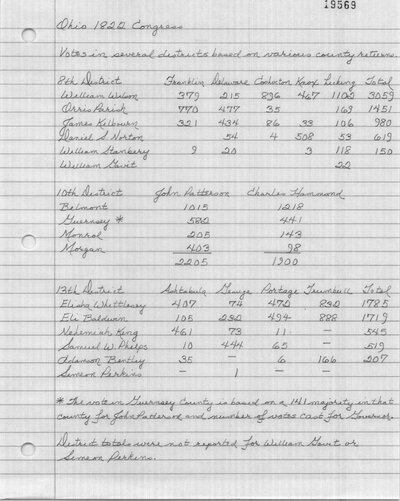 19569
Ohio 1822 Congress
Votes in several districts based on various county returns.
8th District Franklin Delaware Coshocton Knox Licking Total
William Wilson 379 215 896 467 1102 3059
Orris Parish 770 477 35 169 1451
James Kilbourn 321 434 86 33 106 980
Daniel S Norton 54 4 508 53 619
William Stanbery 9 20 3 118 150
William Gavit 22
10th District John Patterson Charles Hammond
Belmont 1015 1218
Guernsey * 582 441
Monroe 205 143
Morgan 403 98
2205 1900
13th District Ashtabula Geauga Portage Trumbull Total
Elisha Whittlesey 407 74 472 832 1785
Eli Baldwin 105 232 494 888 1719
Nehemiah King 461 73 11 - 545
Samuel W. Phelps 10 444 65 - 519
Adamson Bentley 35 - 6 166 207
Simeon Perkins - 1 - -
* The vote in Guernsey County is based on a 141 majority in that
county for John Patterson and number of votes cast for Governor.
District totals were not reported for William Gavit or
Simeon Perkins.